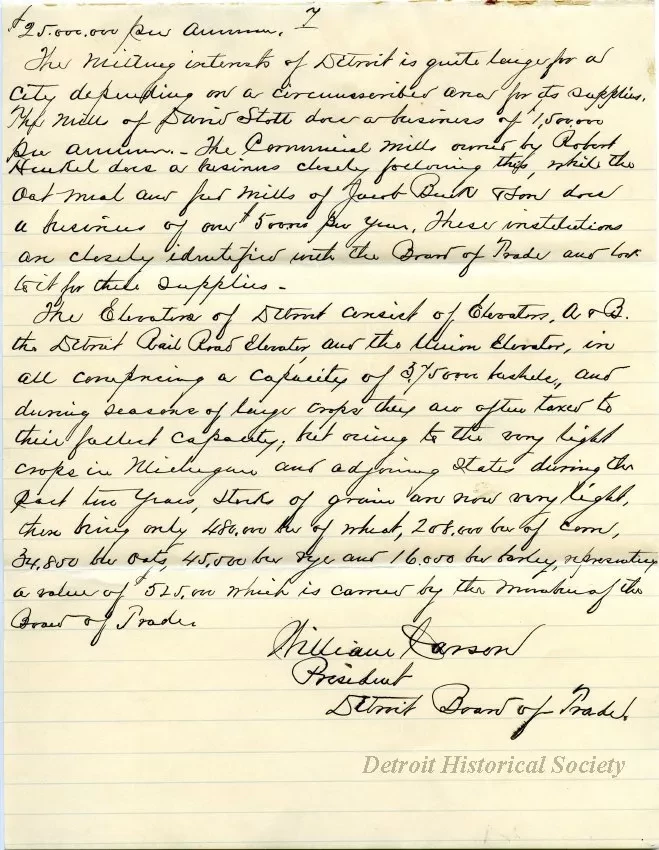 7
$25.000.000 per annum.
The Milling interests of Detroit is quite large for a
city depending on a circumscribed area for its supplies.
The Mills of David Stott does a business of $1,500,000
per annum. - The Commercial Mills owned by Robert
Henkel does a business closely following this, while the
Oat Meal and feed Mills of Jacob Beck & Son does
a business of over $50000 per year. These institutions
are closely identified with the Board of Trade and look
to it for their supplies -
The Elevators of Detroit consist of Elevators, A & B.
the Detroit Rail Road Elevator, and the Union Elevator, in
all comprising a capacity of 3,750000 bushels, and
during seasons of large crops they are often taxed to
their fullest capacity; but owing to the very light
crops in Michigan and adjoining States during the
past two years, stocks of grain are now very light,
there being only 480,000 bu of wheat, 208,000 bu of corn,
34,800 bu oats, 45,000 bu rye and 16,000 bu barley, representing
a value of $525,000 which is carried by the members of the
Board of Trade.
William Carson
President
Detroit Board of Trade.
Detroit Historical Society